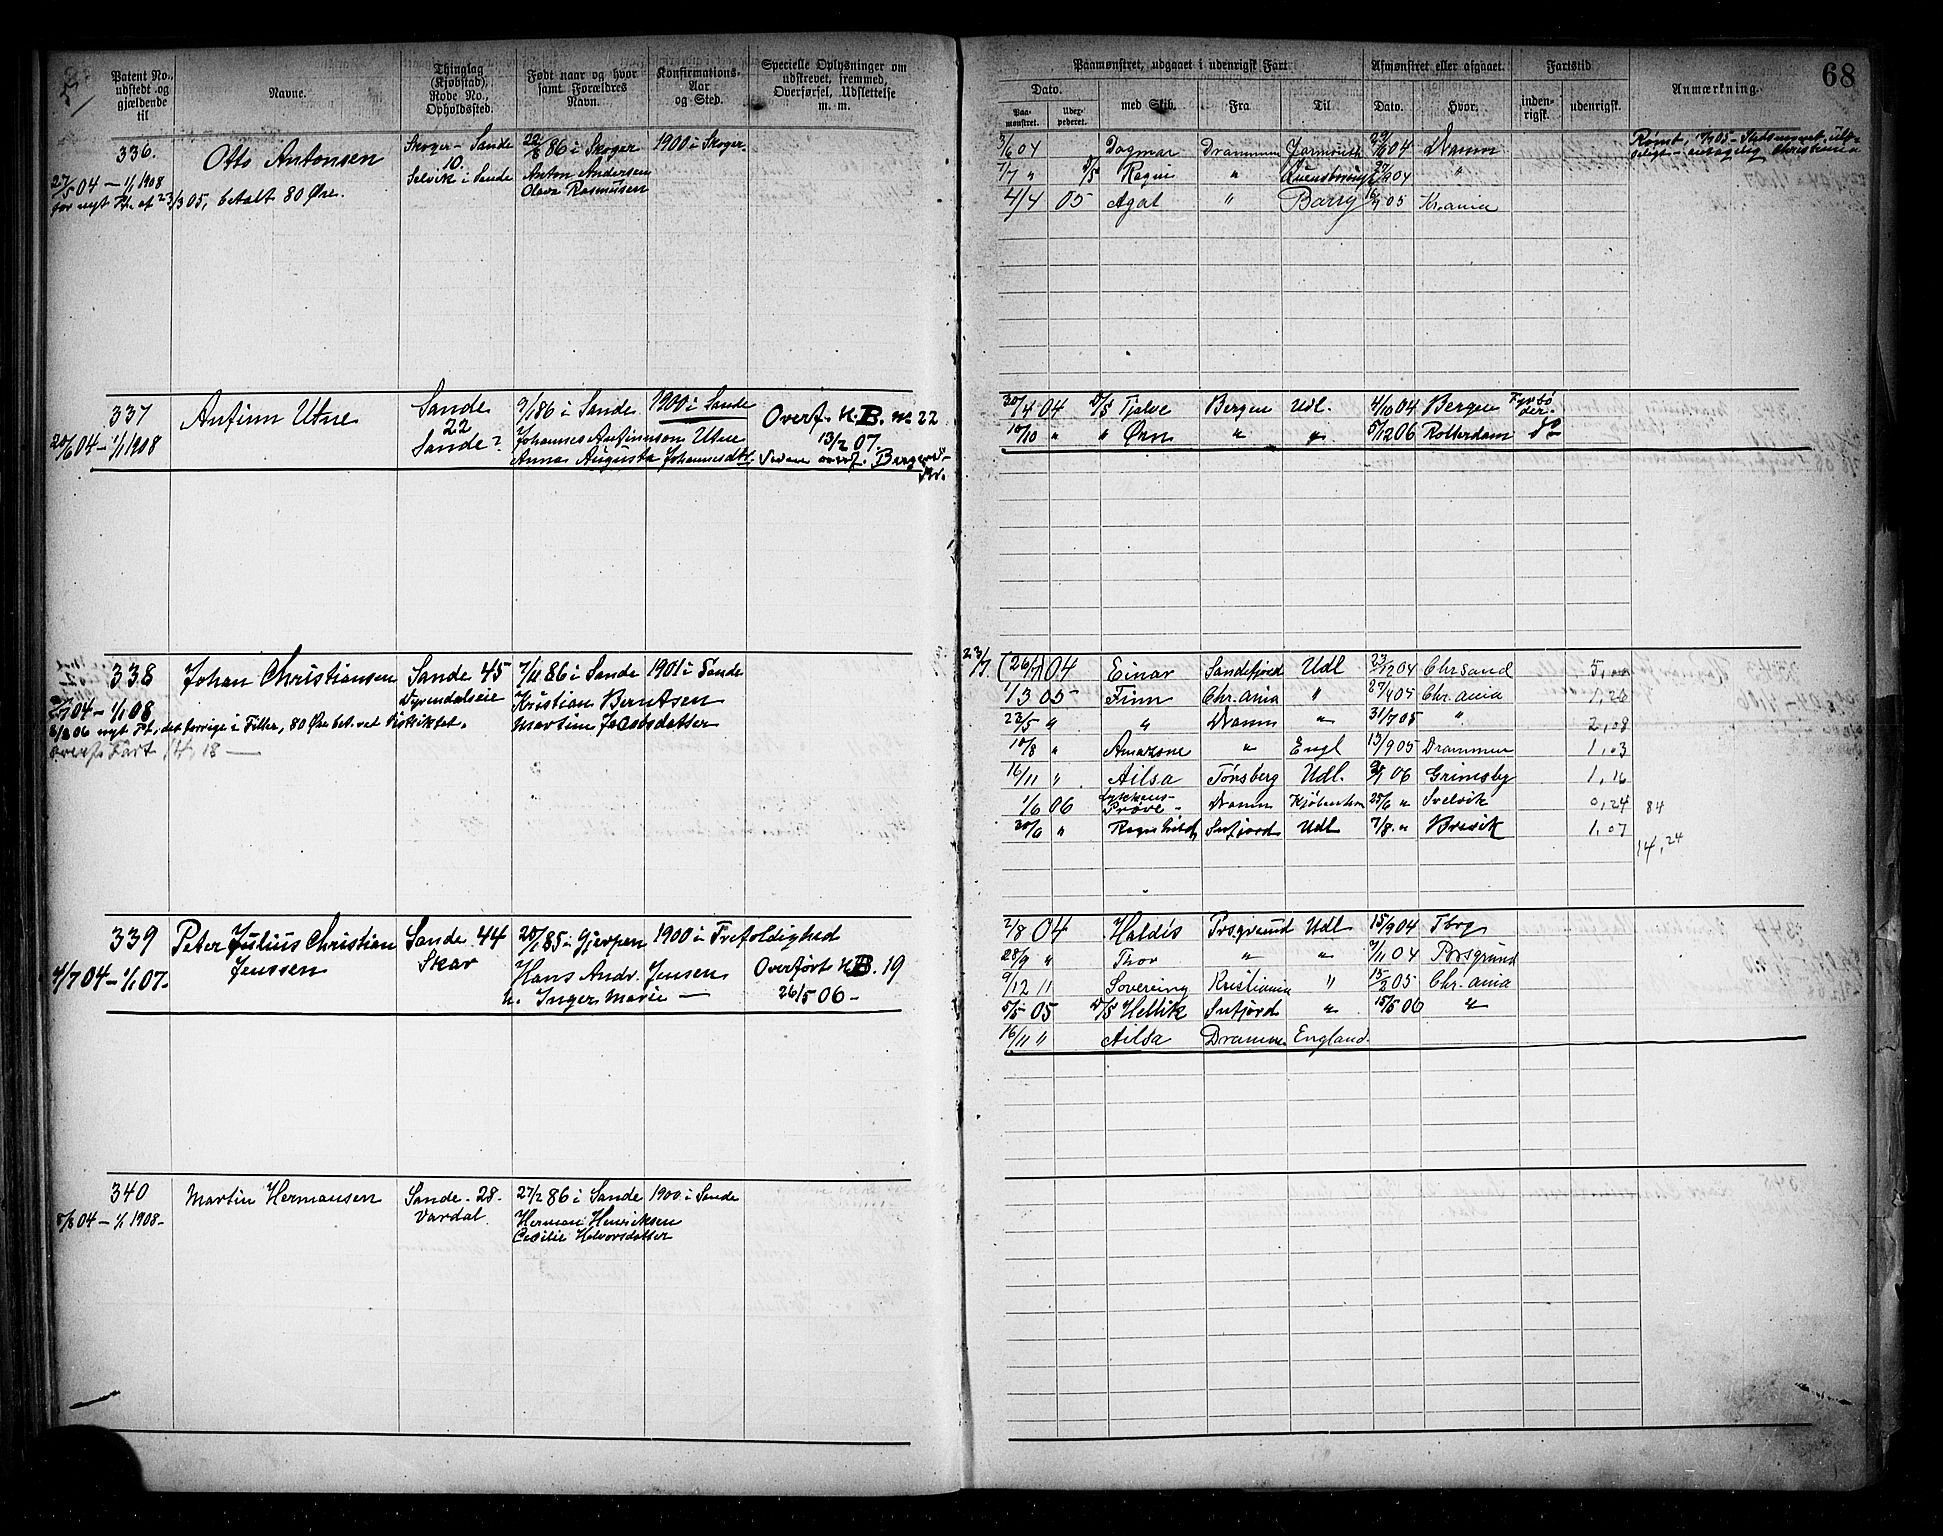 Patent No., udstedt og gjældende til
Navne.
Thinglag (Kjøbstad), Rode No., Opholdssted.
Født naar og hvor samt Forældres Navn.
Konfirmations-Aar og Sted.
Specielle Oplysninger om udstrevet, fremmed, Overførsel, Udslettelse m. m.
Paamønstret, udgaaet i udenrigsk Fart.
Afmønstret eller afgaaet.
Fartstid
68
Dato.
Paa-mønstret.
med Skib.
Fra
Til
Dato.
Hvor.
inden-rigsk.
udenrigsk.
Anmærkning.
336.
Otto Antonsen
Skoger - Sande
10.
Selvik i Sande
22/8 86 i Skoger
Anton Andersen
Olava Rasmussen
1900 i Skoger
27/5 04 - 1/1 1908
for nyt Pt. af 23/3 05, betalt 80 Øre.
3/6 04 Dagmar Drammen 04 Dramm
7/7 " D/S Ragni " 04 "
4/4 05 Agat " Barry 05 Kr.ania
337
Anfinn Utne
Sande
22
Sande?
9/1 86 i Sande
Johannes Anfinnson Utne
Anna Augusta Johannesdtr.
1900 i Sande
Overf. H.B. No 22
13/2 07.
Siden overf. Bergens-
20/6 04 - 1/1 1908
30/4 04 D/S Tjalve Bergen Udl. 4/10 04 Bergen Fyrbø-der.
10/10 " " Ørn " " 5/12 06 Rotterdam Do
338
Johan Christiansen
Sande 45
Dyrendalseie
7/11 86 i Sande
Kristian Berntsen
Martine Jacobsdatter
1901 i Sande
04 - 1/1 08
06 nyt Pt, det forrige i Filler, 80 Øre bet. ved Distriktet.
overf. Fart 14, 18 —
23/7 (26/7) 04 Einar Sandefjord Udl 23/12 04 Chr.sand 5,00
1/3 05 Finn Chr.ania " 27/4 05 Chr.ania 1,26
23/5 " " Dramm " 31/7 05 " 2,08
10/8 " Amazone " Engl 13/9 05 Drammen 1,03
16/11 " Ailsa Tønsberg Udl. 06 Grimsby 1,16
1/6 06 Lykkens-Prøve- Dramm Kjøbenhavn 25/6 " Svelvik 0,24 84
30/6 " Ragnhild Snfjord Udl 7/8 " Brevik 1,07
14,24
339
Peter Julius Christian
Jenssen
Sande 44
Skar
20/1 85 i Gjerpen
Hans Andr. Jensen
h. Inger Marie —
1900 i Trefoldighed
Overført H.B. 19
26/5 06 -
4/7 04 - 1/1 07.
2/8 04 Haldis Prsgrund Udl 15/9 04 Tbrg
28/9 " Thor " " 7/11 04 Porsgrund
9/12 11 Sovereing Kristiania " 15/2 05 Chr.ania
5/5 05 D/S Hellik Snfjord " 15/5 06 "
16/11 " Ailsa Dramme England.
340
Martin Hermansen
Sande - 28.
Vardal
27/2 86 i Sande
Herman Henricksen
Cecilie Halvorsdatter
1900 i Sande
8/8 04 - 1/1 1908 -